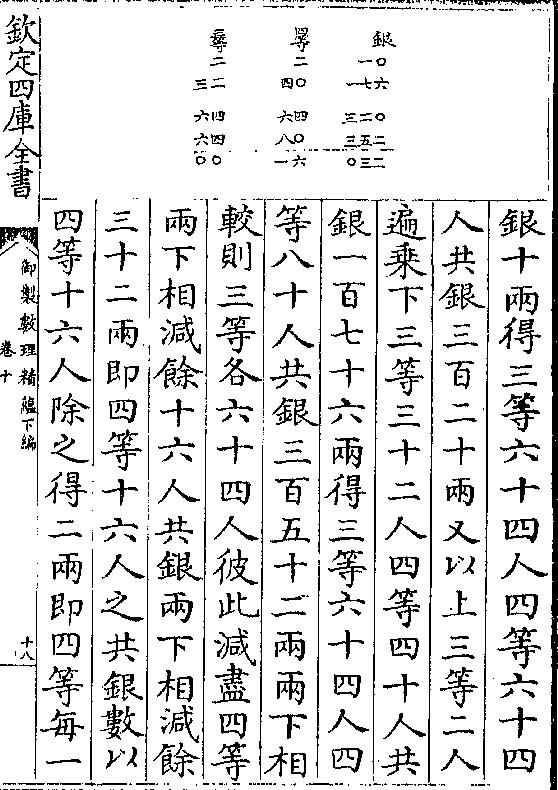 銀
一〇
一七六
三二〇
三五二
〇三二
四等
二
四〇
六四
八〇
一六
三等
二
三二
六四
六四
〇〇
銀十兩得三等六十四人四等六十四
人共銀三百二十兩又以上三等二人
遍乗下三等三十二人四等四十人共
銀一百七十六兩得三等六十四人四
等八十人共銀三百五十二兩兩下相
較則三等各六十四人彼此減盡四等
兩下相減餘十六人共銀兩下相減餘
三十二兩即四等十六人之共銀數以
四等十六人除之得二兩即四等每一
欽定四庫全書
御製數理精蘊下編
卷十
十八